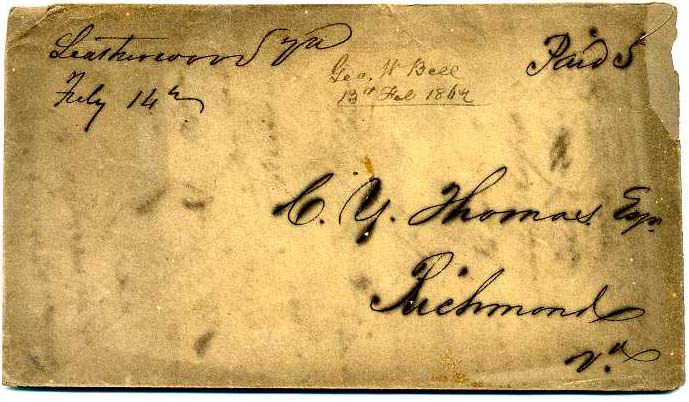 Leatherwood Va
Feby 14th
Geo. W Bell
13th Feb 1862
Paid 5
C. Y. Thomas Esqr
Richmond
Va